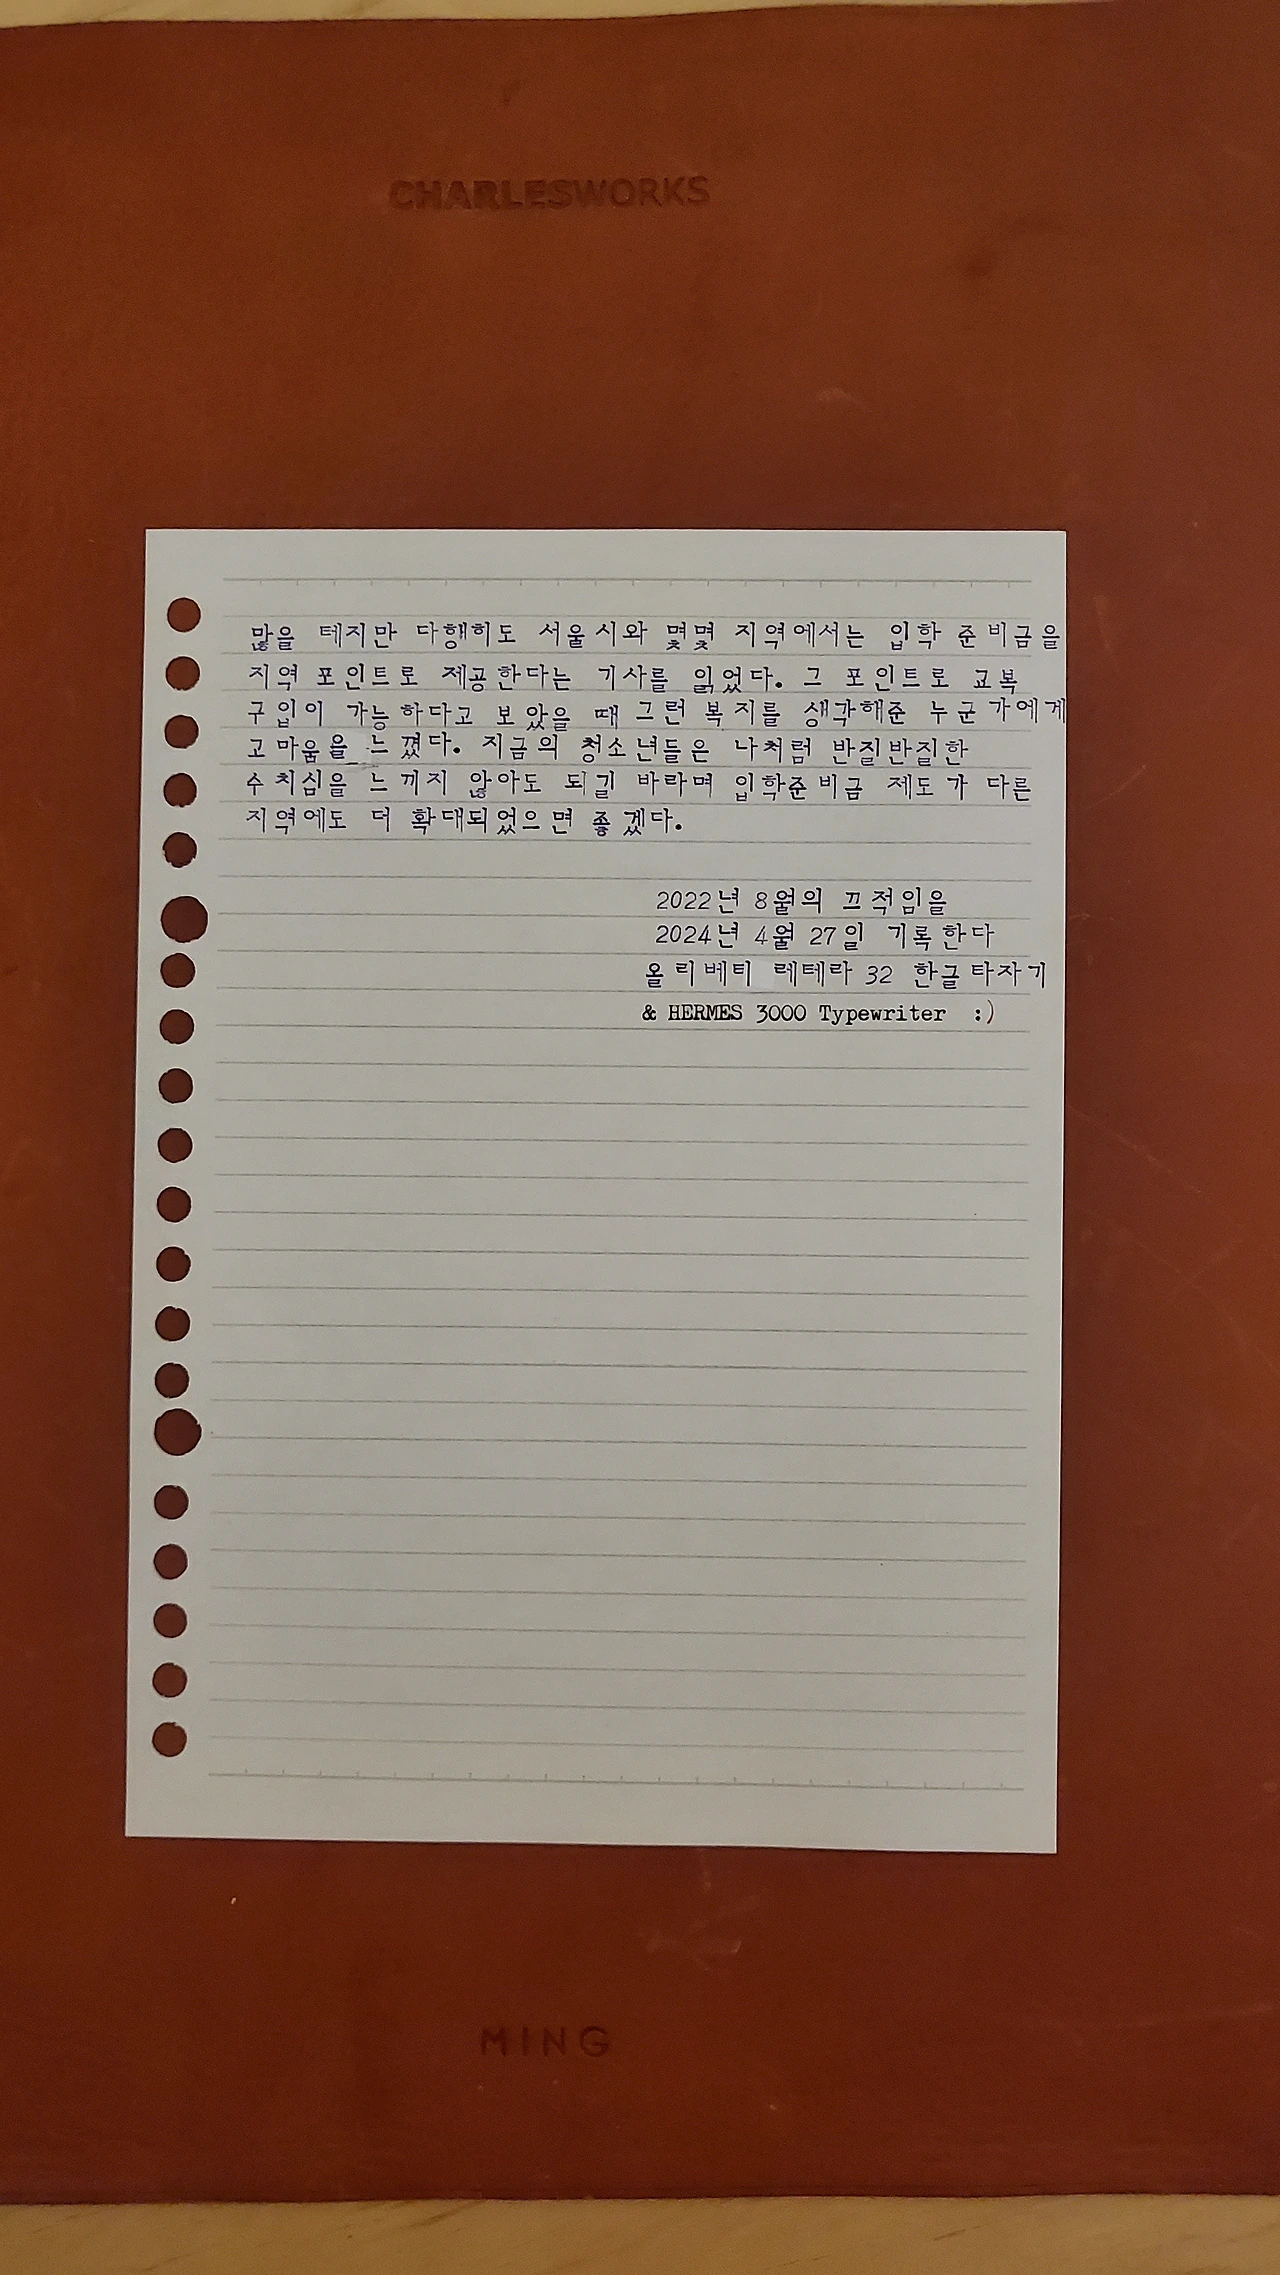 CHARLESWORKS
많을 테지만 다행히도 서울시와 몇몇 지역에서는 입학 준비금을
지역 포인트로 제공한다는 기사를 읽었다. 그 포인트로 교복
구입이 가능하다고 보았을 때 그런 복지를 생각해준 누군가에게
고마움을 느꼈다. 지금의 청소년들은 나처럼 반질반질한
수치심을 느끼지 않아도 되길 바라며 입학준비금 제도가 다른
지역에도 더 확대되었으면 좋겠다.
2022년 8월의 끄적임을
2024년 4월 27일 기록한다
올리베티 레테라 32 한글타자기
& HERMES 3000 Typewriter :)
MING